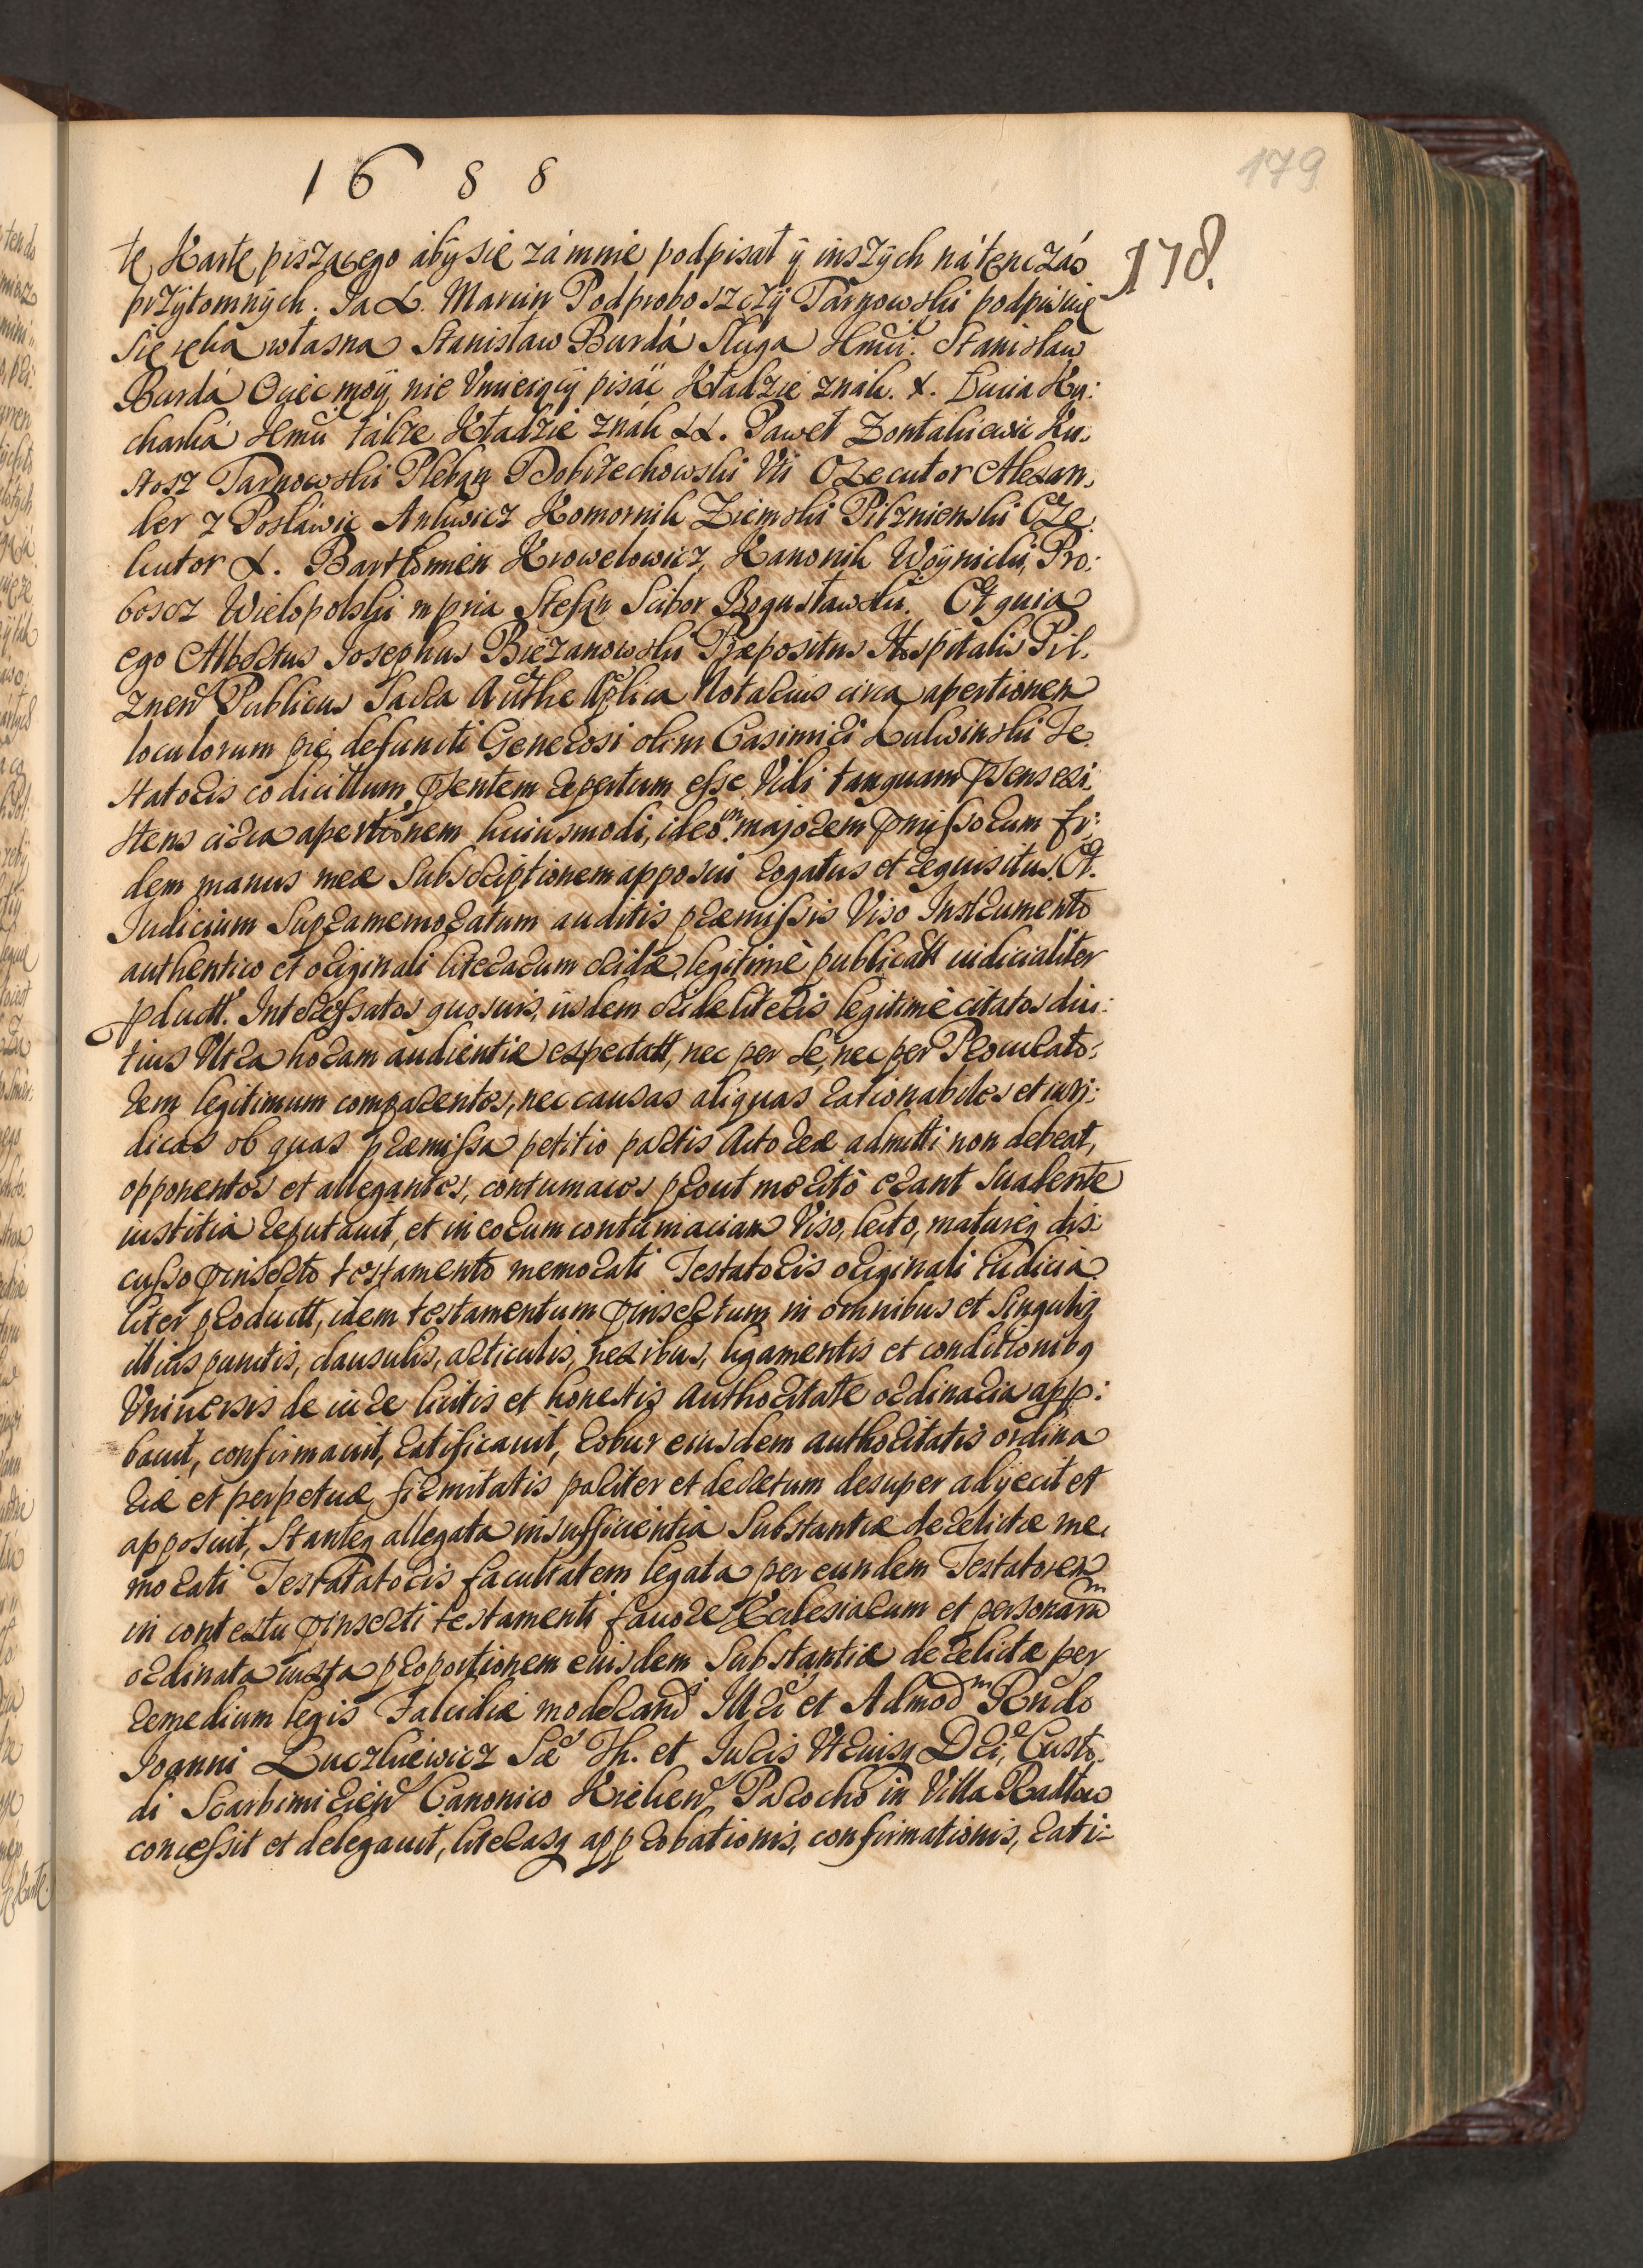 1688
179
178.
tę Kartę piszącego aby się zá mnie podpisał ÿ inszÿch nátenczás
przytomnÿch. Ja X. Marcin Podproboszczÿ Tarnowski podpisuię
się ręką własną Stanisław Burdá Sługa Jmci. Stanisław
Burdá Ociec moÿ nie Vmieiącÿ pisáć Kładzie znák. X. Łucia Ku:
charká Jmci tákże Kładzie znák XX. Paweł
stosz Tarnowski Pleban Dobrzechowski Vti Executor Alexan,
der z Posławic Ankwicz Komornik Ziemski Pilznienski Exe:
kutor X. Bartłomiey Krowelowicz, Kanonik Woÿnicki, Pro:
boscz Wielopolski mpria Stefan Scibor Bogusławski. Et quia
ego Albertus Josephus Bieżanowski Præpositus Hospitalis Pil,
znen Publicus Sacra Authe Aplica Notarius circa apertionem
loculorum piè defuncti Generosi olim Casimiri Te
statoris codicillum pntem repertum esse Vidi tanquam pns exi,
stens circa apertionem huiusmodi, ideo in majorem pmissorum fi:
dem manus meæ Subscriptionem apposui rogatus et requisitus. Et.
Iudicium Supramemoratum auditis præmissis Viso Instrumento
authentico et originali literarum cridæ, legitimè publicatt iudicialiter
pductt. Interessatos quosuis, iisdem cridæ literis legitimè citatos diu:
tius Vltra horam audientiæ expectatt, nec per se, nec per Procurato:
rem legitimum comparentes, nec causas aliquas rationabiles et iuri:
dicas ob quas præmissa petitio partis Actoreæ admitti non debeat,
opponentes et allegantes, contumaces prout meritò erant Suadente
iustitia reputauit, et in eorum contumaciam Viso, lecto, matureq dis:
cusso pinserto testamento memorati Testatoris originali iudicia
liter productt, idem testamentum pinsertum in omnibus et Singulis
illius punctis, clausulis, articulis, nexibus, ligamentis et conditionibq
Vniuersis de iure licitis et honestis Authoritate ordinaria app:
bauit, confirmauit, ratificauit, robur eiusdem authoritatis ordina
riæ et perpetuæ firmitatis pariter et decretum desuper adÿecit et
apposuit, Stanteq allegata insufficientia Substantiæ derelictæ me,
morati Testatatoris facultatem legata per eundem Testatorem
in contextu pinserti testamenti fauore Ecclesiarum et personarum
ordinata iuxta proportionem eiusdem Substantiæ derelictæ per
remedium legis Falcidiæ moderandi Illri et Admod Rndo
Joanni Łuczkiewicz Sæ Th. et Juris Vtriusq Dri, Custo,
di Scarbimirien Canonico Kielcen Parocho in Villa Radłow
concessit et delegauit, literasq approbationis, confirmationis, rati: